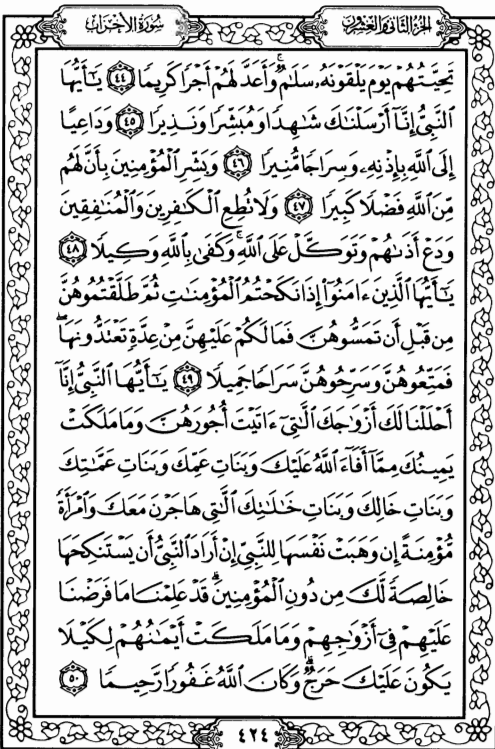 الجزء الثاني والعشرون
سورة الأحزاب
تَحِيَّتُهُمْ يَوْمَ يَلْقَوْنَهُۥ سَلَٰمٌۚ وَأَعَدَّ لَهُمْ أَجْرًا كَرِيمًا ﴿٤٤﴾ يَٰٓأَيُّهَا
ٱلنَّبِىُّ إِنَّآ أَرْسَلْنَٰكَ شَٰهِدًا وَمُبَشِّرًا وَنَذِيرًا ﴿٤٥﴾ وَدَاعِيًا
إِلَى ٱللَّهِ بِإِذْنِهِۦ وَسِرَاجًا مُّنِيرًا ﴿٤٦﴾ وَبَشِّرِ ٱلْمُؤْمِنِينَ بِأَنَّ لَهُم
مِّنَ ٱللَّهِ فَضْلًا كَبِيرًا ﴿٤٧﴾ وَلَا تُطِعِ ٱلْكَٰفِرِينَ وَٱلْمُنَٰفِقِينَ
وَدَعْ أَذَىٰهُمْ وَتَوَكَّلْ عَلَى ٱللَّهِۚ وَكَفَىٰ بِٱللَّهِ وَكِيلًا ﴿٤٨﴾
يَٰٓأَيُّهَا ٱلَّذِينَ ءَامَنُوٓا۟ إِذَا نَكَحْتُمُ ٱلْمُؤْمِنَٰتِ ثُمَّ طَلَّقْتُمُوهُنَّ
مِن قَبْلِ أَن تَمَسُّوهُنَّ فَمَا لَكُمْ عَلَيْهِنَّ مِنْ عِدَّةٍ تَعْتَدُّونَهَاۖ
فَمَتِّعُوهُنَّ وَسَرِّحُوهُنَّ سَرَاحًا جَمِيلًا ﴿٤٩﴾ يَٰٓأَيُّهَا ٱلنَّبِىُّ إِنَّآ
أَحْلَلْنَا لَكَ أَزْوَٰجَكَ ٱلَّٰتِىٓ ءَاتَيْتَ أُجُورَهُنَّ وَمَا مَلَكَتْ
يَمِينُكَ مِمَّآ أَفَآءَ ٱللَّهُ عَلَيْكَ وَبَنَاتِ عَمِّكَ وَبَنَاتِ عَمَّٰتِكَ
وَبَنَاتِ خَالِكَ وَبَنَاتِ خَٰلَٰتِكَ ٱلَّٰتِى هَاجَرْنَ مَعَكَ وَٱمْرَأَةً
مُّؤْمِنَةً إِن وَهَبَتْ نَفْسَهَا لِلنَّبِىِّ إِنْ أَرَادَ ٱلنَّبِىُّ أَن يَسْتَنكِحَهَا
خَالِصَةً لَّكَ مِن دُونِ ٱلْمُؤْمِنِينَۗ قَدْ عَلِمْنَا مَا فَرَضْنَا
عَلَيْهِمْ فِىٓ أَزْوَٰجِهِمْ وَمَا مَلَكَتْ أَيْمَٰنُهُمْ لِكَيْلَا
يَكُونَ عَلَيْكَ حَرَجٌۗ وَكَانَ ٱللَّهُ غَفُورًا رَّحِيمًا ﴿٥٠﴾
٤٢٤